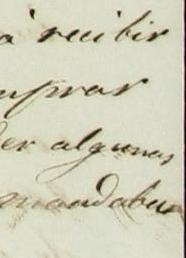 a recibir
mprar
er algunas
mandaba